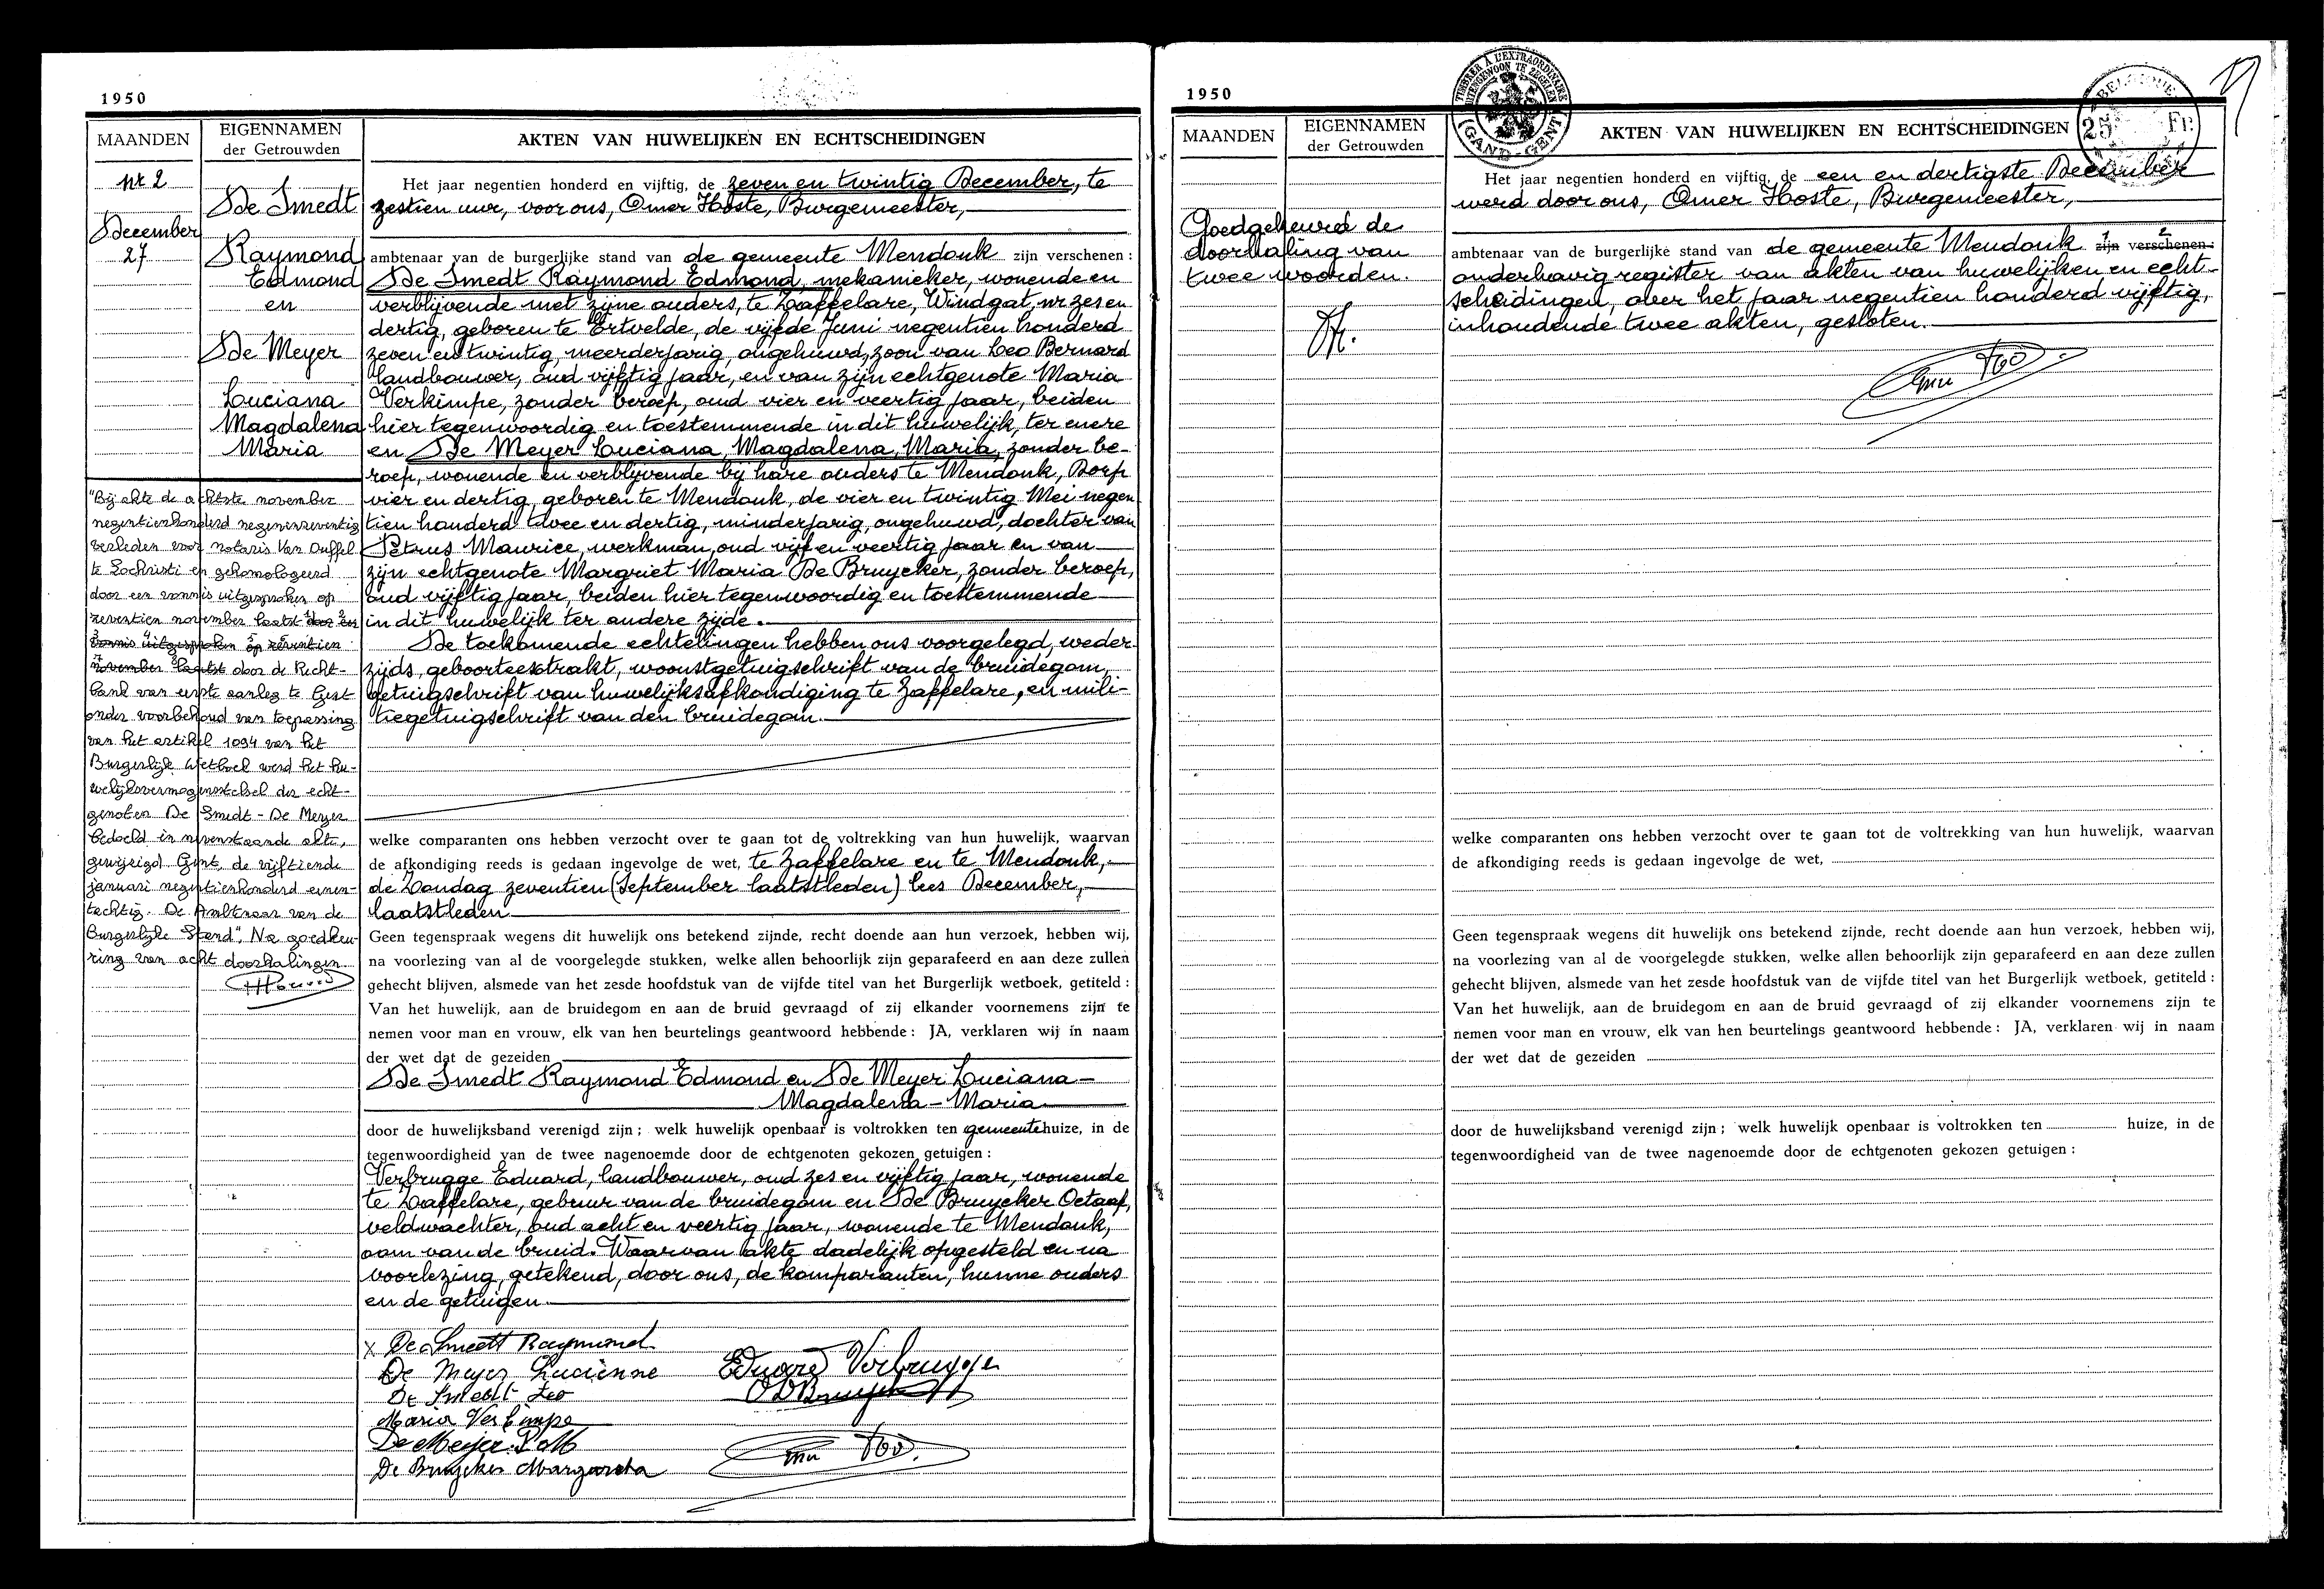 1950
MAANDEN
EIGENNAMEN
der Getrouwden
AKTEN VAN HUWELIJKEN EN ECHTSCHEIDINGEN
nr 2
December
27
De Smedt
Raymond
Edmond
en
De Meyer
Luciana
Magdalena
Maria
"Bij akte de achtste november
negentienhonderd negenenzeventig
verleden voor notaris Van Duffel
te Lochristi en gehomologeerd
door een vonnis uitgesproken op
zeventien november laatst door een
vonnis uitgesproken op zeventien
november laatst door de Recht-
bank van eerste aanleg te Gent
onder voorbehoud van toepassing
van het artikel 1094 van het
Burgerlijk Wetboek werd het hu-
welijksvermogensstelsel der echt-
genoten De Smedt - De Meyer
bedoeld in nevenstaande akte,
gewijzigd. Gent, de vijftiende
januari negentienhonderd eenen-
tachtig. De Ambtenaar van de
Burgerlijke Stand". Na goedkeu-
ring van acht doorhalingen.
Het jaar negentien honderd en vijftig, de zeven en twintig December, te
zestien uur, voor ons, Omer Hoste, Burgemeester,
ambtenaar van de burgerlijke stand van de gemeente Mendonk zijn verschenen :
De Smedt Raymond Edmond, mekanieker, wonende en
verblijvende met zijne ouders, te Zaffelare, Windgat, nr zes en
dertig, geboren te Ertvelde, de vijfde Juni negentien honderd
zeven en twintig, meerderjarig, ongehuwd, zoon van Leo Bernard
landbouwer, oud vijftig jaar, en van zijn echtgenote Maria
Verkimpe, zonder beroep, oud vier en veertig jaar, beiden
hier tegenwoordig en toestemmende in dit huwelijk, ter enere
en De Meyer Luciana, Magdalena, Maria, zonder be-
roep, wonende en verblijvende bij hare ouders te Mendonk, Dorp
vier en dertig, geboren te Mendonk, de vier en twintig Mei negen
tien honderd twee en dertig, minderjarig, ongehuwd, dochter van
Petrus Maurice, werkman, oud vijf en veertig jaar en van
zijn echtgenote Margriet Maria De Bruycker, zonder beroep,
oud vijftig jaar, beiden hier tegenwoordig en toestemmende
in dit huwelijk ter andere zijde.
De toekomende echtelingen hebben ons voorgelegd, weder-
zijds, geboorteekstrakt, woonstgetuigschrift van de bruidegom,
getuigschrift van huwelijksafkondiging te Zaffelare, en mili-
tiegetuigschrift van den bruidegom.
welke comparanten ons hebben verzocht over te gaan tot de voltrekking van hun huwelijk, waarvan
de afkondiging reeds is gedaan ingevolge de wet, te Zaffelare en te Mendonk,
de Zondag zeventien (September laatstleden) lees December,
laatstleden
Geen tegenspraak wegens dit huwelijk ons betekend zijnde, recht doende aan hun verzoek, hebben wij,
na voorlezing van al de voorgelegde stukken, welke allen behoorlijk zijn geparafeerd en aan deze zullen
gehecht blijven, alsmede van het zesde hoofdstuk van de vijfde titel van het Burgerlijk wetboek, getiteld :
Van het huwelijk, aan de bruidegom en aan de bruid gevraagd of zij elkander voornemens zijn te
nemen voor man en vrouw, elk van hen beurtelings geantwoord hebbende : JA, verklaren wij in naam
der wet dat de gezeiden
De Smedt Raymond Edmond en De Meyer Luciana-
Magdalena - Maria
door de huwelijksband verenigd zijn ; welk huwelijk openbaar is voltrokken ten gemeentehuize, in de
tegenwoordigheid van de twee nagenoemde door de echtgenoten gekozen getuigen :
Verbrugge Eduard, landbouwer, oud zes en vijftig jaar, wonende
te Zaffelare, gebuur van de bruidegom en De Bruycker Octaaf,
veldwachter, oud acht en veertig jaar, wonende te Mendonk,
oom van de bruid. Waarvan akte dadelijk opgesteld en na
voorlezing, getekend, door ons, de komparanten, hunne ouders
en de getuigen.
x De Smedt Raymond
De Meyer Lucienne
De Smedt Leo
Maria Verkimpe
De Meyer P. M
De Bruycker Margareta
Eduard Verbrugge
O D Bruycker
1950
TIMBRER A L'EXTRAORDINAIRE
BUITENGEWOON TE ZEGELEN
GAND-GENT
BELGIQUE
25 Fr.
MAANDEN
EIGENNAMEN
der Getrouwden
AKTEN VAN HUWELIJKEN EN ECHTSCHEIDINGEN
Goedgekeurd de
doorhaling van
twee woorden.
Het jaar negentien honderd en vijftig, de een en dertigste December
werd door ons, Omer Hoste, Burgemeester,
ambtenaar van de burgerlijke stand van de gemeente Mendonk zijn verschenen :
onderhavig register van akten van huwelijken en echt-
scheidingen, over het jaar negentien honderd vijftig,
inhoudende twee akten, gesloten.
welke comparanten ons hebben verzocht over te gaan tot de voltrekking van hun huwelijk, waarvan
de afkondiging reeds is gedaan ingevolge de wet,
Geen tegenspraak wegens dit huwelijk ons betekend zijnde, recht doende aan hun verzoek, hebben wij,
na voorlezing van al de voorgelegde stukken, welke allen behoorlijk zijn geparafeerd en aan deze zullen
gehecht blijven, alsmede van het zesde hoofdstuk van de vijfde titel van het Burgerlijk wetboek, getiteld :
Van het huwelijk, aan de bruidegom en aan de bruid gevraagd of zij elkander voornemens zijn te
nemen voor man en vrouw, elk van hen beurtelings geantwoord hebbende : JA, verklaren wij in naam
der wet dat de gezeiden
door de huwelijksband verenigd zijn ; welk huwelijk openbaar is voltrokken ten huize, in de
tegenwoordigheid van de twee nagenoemde door de echtgenoten gekozen getuigen :